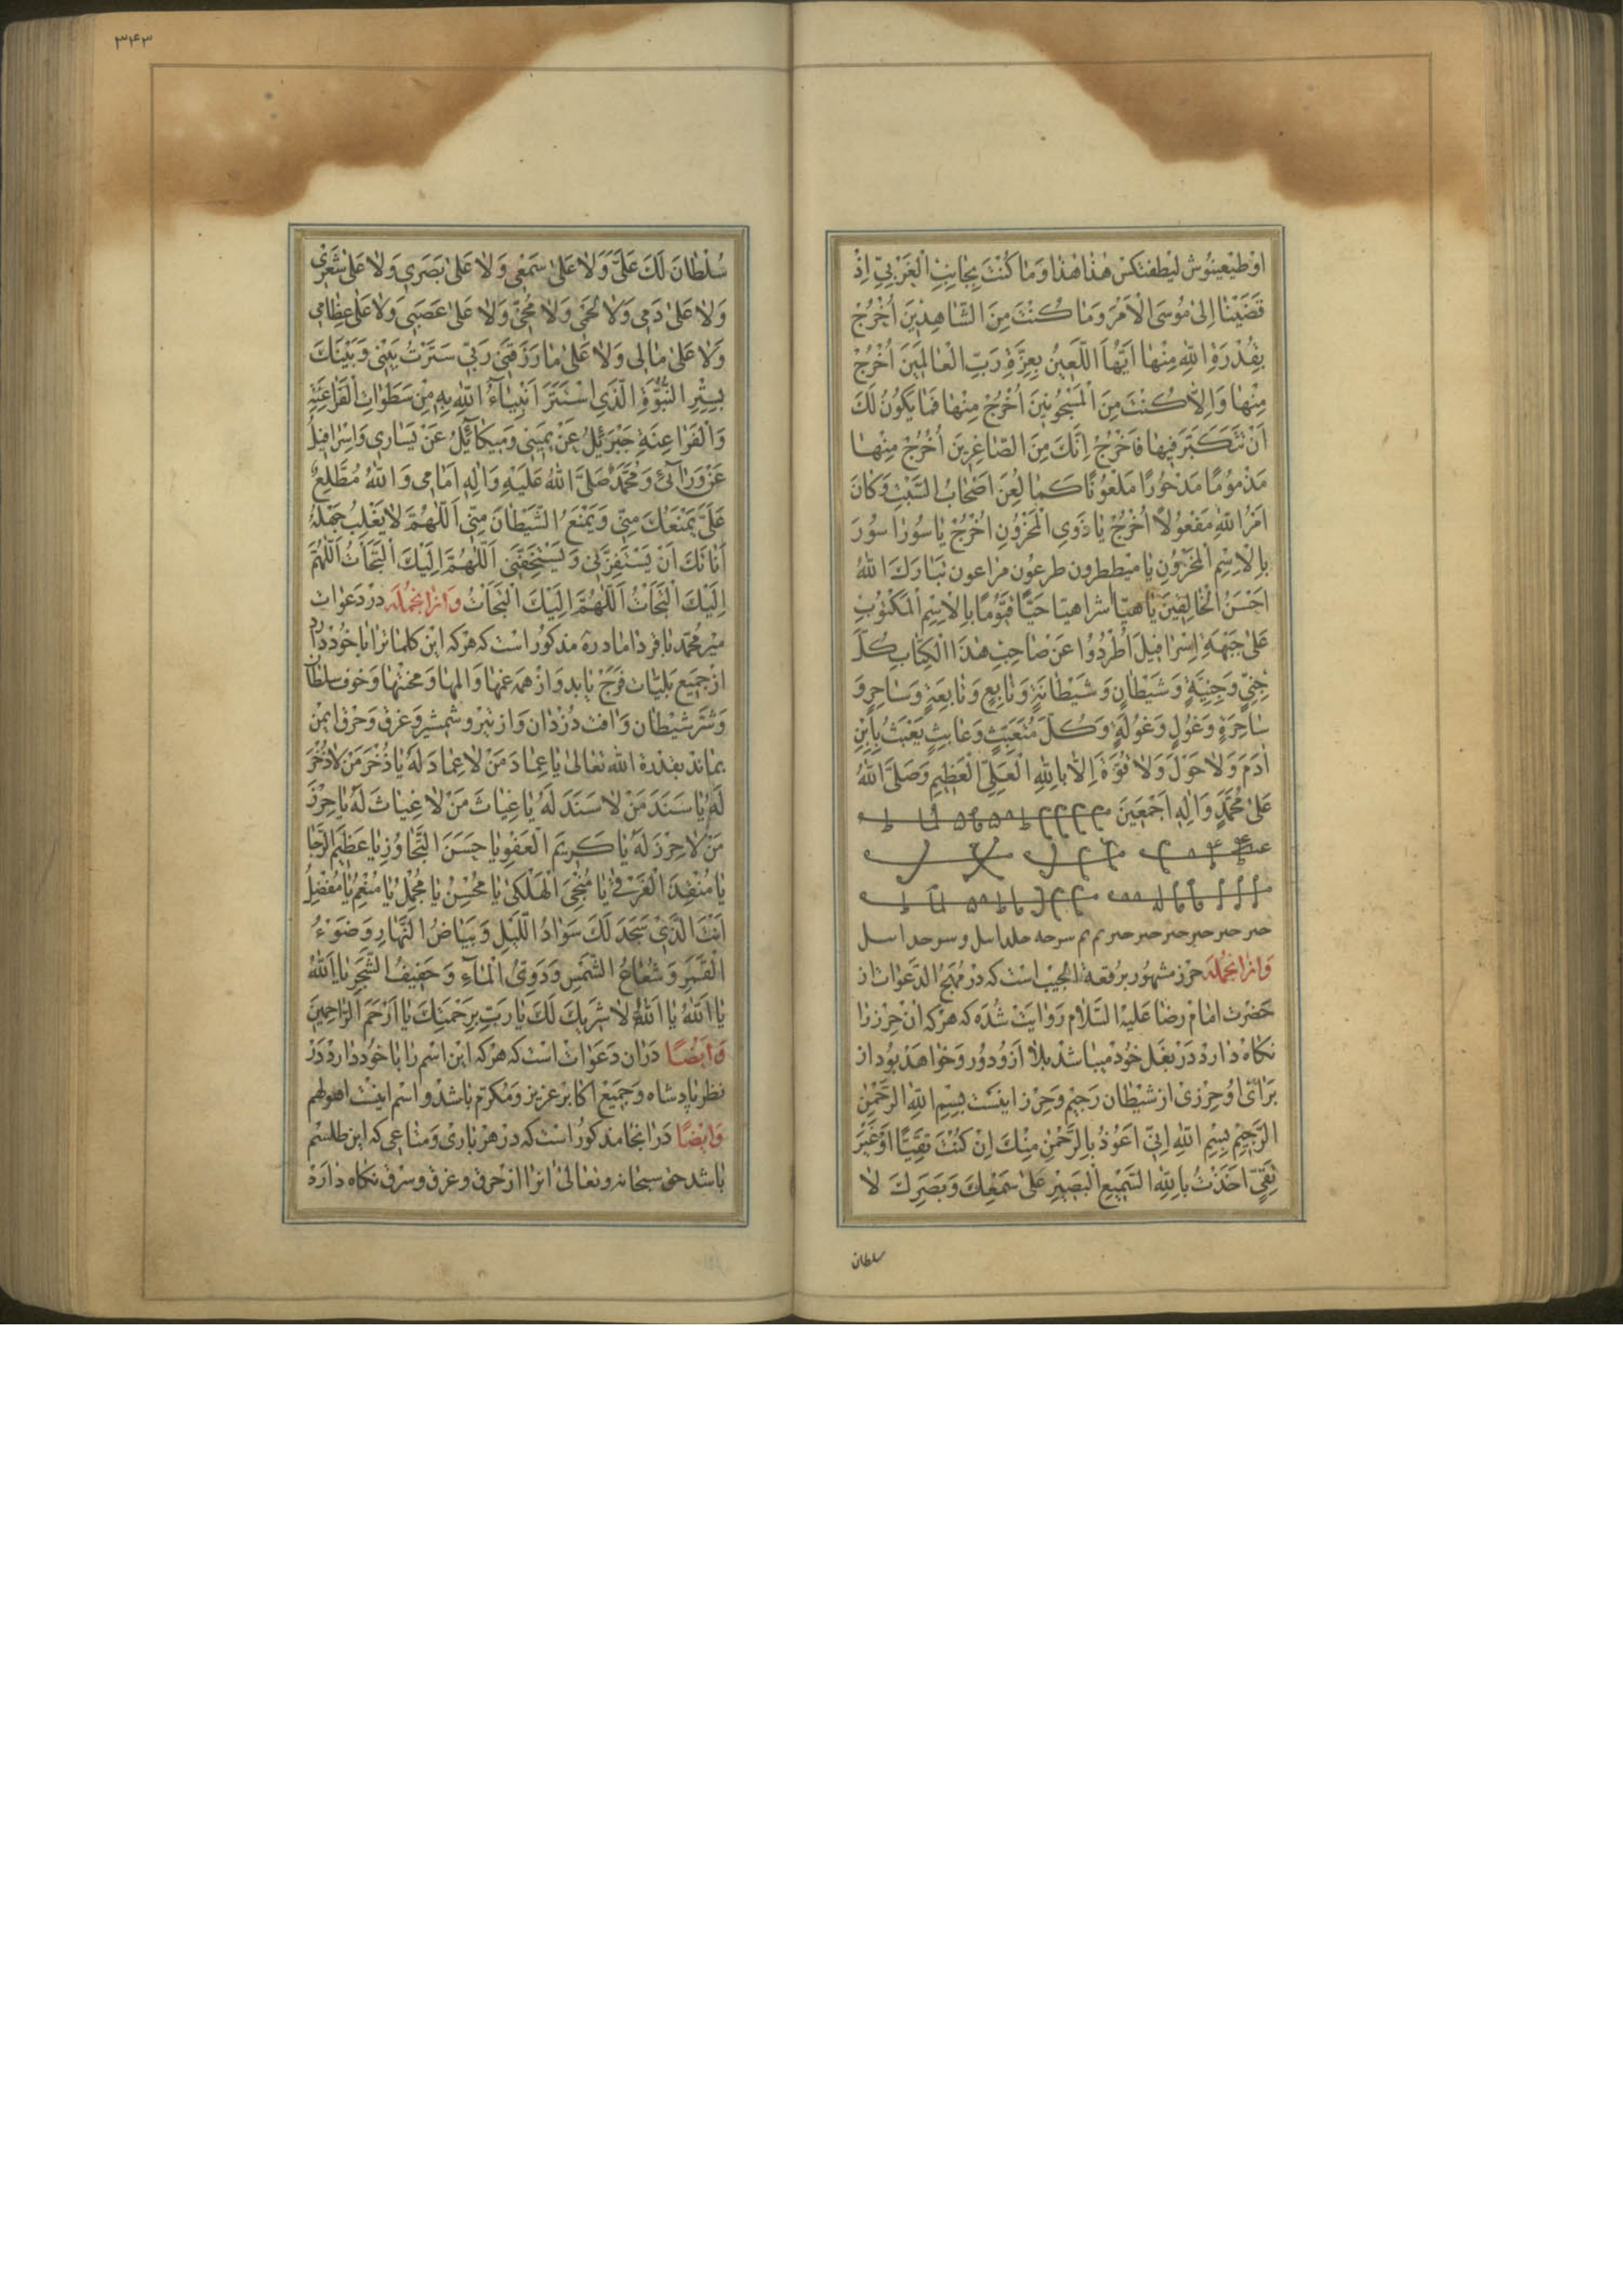 اوْ طَیْعِینُوش لَیَطْفَتْکَس هٰذَا هٰذَا وَمٰا کُنْتَ بِجٰانِبِ الْغَرْبِیِّ اِذْ
قَضَیْنٰا اِلیٰ مُوسَی الْاَمْرَ وَمٰا کُنْتَ مِنَ الشّٰاهِدِینَ اُخْرُجْ
بِقُدْرَةِ اللّٰهِ مِنْهٰا اَیُّهَا اللَّعِینُ بِعِزَّةِ رَبِّ الْعٰالَمِینَ اُخْرُجْ
مِنْهٰا وَاِلّٰا کُنْتَ مِنَ الْمَسْجُونِینَ اُخْرُجْ مِنْهٰا فَمٰا یَکُونُ لَکَ
اَنْ تَتَکَبَّرَ فِیهٰا فَاخْرُجْ اِنَّکَ مِنَ الصّٰاغِرِینَ اُخْرُجْ مِنْهٰا
مَذْمُومًا مَدْحُورًا مَلْعُونًا کَمٰا لُعِنَ اَصْحٰابُ السَّبْتِ وَکٰانَ
اَمْرُ اللّٰهِ مَفْعُولًا اُخْرُجْ یٰا ذَوِی الْمَحْزُونِ اُخْرُجْ یٰا سُورٰا سُورَ
بِالْاِسْمِ الْمَخْزُونِ یٰا میططرون طرعون مراعون تَبٰارَکَ اللّٰهُ
اَحْسَنُ الْخٰالِقِینَ یٰا هیّا شراهیّا حَیًّا قَیُّومًا بِالْاِسْمِ الْمَکْتُوبِ
عَلیٰ جَبْهَةِ اِسْرٰافِیلَ اُطْرُدُوا عَنْ صٰاحِبِ هٰذَا الْکِتٰابِ کُلَّ
جِنِّیٍّ وَجِنِّیَّةٍ وَشَیْطٰانٍ وَشَیْطٰانَةٍ وَتٰابِعٍ وَتٰابِعَةٍ وَسٰاحِرٍ وَ
سٰاحِرَةٍ وَغُولٍ وَغُولَةٍ وَکُلَّ مُتَعَبِّثٍ وَعٰابِثٍ یَعْبَثُ بِابْنِ
اٰدَمَ وَلٰا حَوْلَ وَلٰا قُوَّةَ اِلّٰا بِاللّٰهِ الْعَلِیِّ الْعَظِیمِ وَصَلَّی اللّٰهُ
عَلیٰ مُحَمَّدٍ وَاٰلِهِ اَجْمَعِینَ
وَازانجُمله حرز مشهور برقعة الجیب است که در مُهَج الدّعوات از
حَضْرت امٰام رضٰا عَلیْهِ السَّلٰام رَوٰایَت شُدَه که هرکه ان حِرْز رٰا
نکٰاه دٰارد دَرْ بغَل خُودْ میبٰاشد بلٰا اَزُو دُور وَخوٰاهَد بُود از
بَرٰای اوُ حِرْزی از شَیْطٰان رَجیْم وَحِرْز اینَسْت بِسْمِ اللّٰهِ الرَّحْمٰنِ
الرَّحِیْمِ بِسْمِ اللّٰهِ اِنّی اَعُوْذُ بِالرَّحْمٰنِ مِنْکَ اِنْ کُنْتَ تَقِیًّا اَوْ غَیْرَ
تَقِیٍّ اَخَذْتُ بِاللّٰهِ السَّمِیعِ الْبَصِیْرِ عَلیٰ سَمْعِکَ وَبَصَرِکَ لٰا
سلطان
۳۴۳
سُلْطٰانَ لَکَ عَلَیَّ وَلٰا عَلیٰ سَمْعِی وَلٰا عَلیٰ بَصَرِی وَلٰا عَلیٰ شَعْرِی
وَلٰا عَلیٰ دَمِی وَلٰا لَحْمِی وَلٰا مُخِّی وَلٰا عَلیٰ عَصَبِی وَلٰا عَلیٰ عِظٰامِی
وَلٰا عَلیٰ مٰالِی وَلٰا عَلیٰ مٰا رَزَقَنِی رَبِّی سَتَرْتُ بَیْنِی وَبَیْنَکَ
بِسِتْرِ النُّبُوَّةِ الَّذِی اسْتَتَرَ اَنْبِیٰآءُ اللّٰهِ بِهِ مِنْ سَطَوٰاتِ الْفَرٰاعِنَةِ
وَالْفَرٰاعِنَةِ جَبْرَئِیْلُ عَنْ یَمِینِی وَمِیکٰآئِیْلُ عَنْ یَسٰارِی وَاِسْرٰافِیلُ
عَنْ وَرٰآئِی وَمُحَمَّدٌ صَلَّی اللّٰهُ عَلَیْهِ وَاٰلِهِ اَمٰامِی وَاللّٰهُ مُطَّلِعٌ
عَلَیَّ یَمْنَعُکَ مِنِّی وَیَمْنَعُ الشَّیْطٰانَ مِنِّی اَللّٰهُمَّ لٰا یَغْلِبُ جَهْلُهُ
اَنٰاتَکَ اَنْ یَسْتَفِزَّنِی وَیَسْتَخِفَّنِی اَللّٰهُمَّ اِلَیْکَ الْتَجَأْتُ اَللّٰهُمَّ
اِلَیْکَ الْتَجَأْتُ اَللّٰهُمَّ اِلَیْکَ الْتَجَأْتُ وَازانجُمله دَرْ دَعَوٰات
میرْ مُحمّد بٰاقر دٰامٰاد ره مذکُورْ است که هرکه این کلمٰات را بٰا خُود دٰارد
ازْ جَمیْع بَلیّٰات فَرَجْ یٰابد وَازْ همَه غمهٰا وَالمهٰا وَمحنَتْهٰا وَخَوف سلطٰان
وَشَرّ شیْطٰان وَافت دُزْدٰان وَاز تیْر و شمْشیر وَغرَق وَحَرْق ایمنْ
بمٰاند بقدرة اللّٰه تعٰالیٰ یٰا عِمٰادَ مَنْ لٰا عِمٰادَ لَهُ یٰا ذُخْرَ مَنْ لٰا ذُخْرَ
لَهُ یٰا سَنَدَ مَنْ لٰا سَنَدَ لَهُ یٰا غِیٰاثَ مَنْ لٰا غِیٰاثَ لَهُ یٰا حِرْزَ
مَنْ لٰا حِرْزَ لَهُ یٰا کَرِیمَ الْعَفْوِ یٰا حَسَنَ التَّجٰاوُزِ یٰا عَظِیمَ الرَّجٰا
یٰا مُنْقِذَ الْغَرْقیٰ یٰا مُنْجِیَ الْهَلْکیٰ یٰا مُحْسِنُ یٰا مُجْمِلُ یٰا مُنْعِمُ یٰا مُفْضِلُ
اَنْتَ الَّذِی سَجَدَ لَکَ سَوٰادُ اللَّیْلِ وَبَیٰاضُ النَّهٰارِ وَضَوْءُ
الْقَمَرِ وَشُعٰاعُ الشَّمْسِ وَدَوِیُّ الْمٰآءِ وَحَفِیفُ الشَّجَرِ یٰا اَللّٰهُ
یٰا اَللّٰهُ یٰا اَللّٰهُ لٰا شَرِیکَ لَکَ یٰا رَبِّ بِرَحْمَتِکَ یٰا اَرْحَمَ الرّٰاحِمِینَ
وَایْضًا دَرْ ان دَعَوٰات اسْت که هرْکه این اسْم رٰا بٰا خُود دٰارد دَرْ
نظر پٰادشٰاه وَجَمیْع اکٰابر عزیز وَمُکرّم بٰاشد و اسْم اینسْت اهولهم
وَایْضًا دَرْ انجٰا مذکُورْ است که در هرْ بٰاری وَمتٰاعی که این طلسْم
بٰاشد حق سبحٰانه وتعٰالیٰ انرٰا از حَرق و غرق و سرق نکٰاه دٰارَد